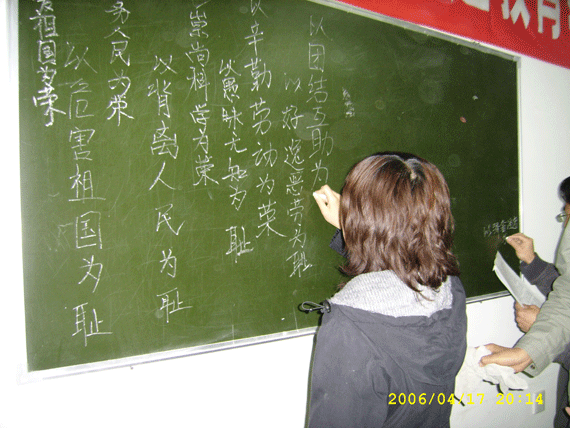 祖国为荣
以危害祖国为耻
务人民为荣
以背离人民为耻
崇尚科学为荣
以愚昧无知为耻
以辛勤劳动为荣
以好逸恶劳为耻
以团结互助为
教育
2006/04/17 20:14